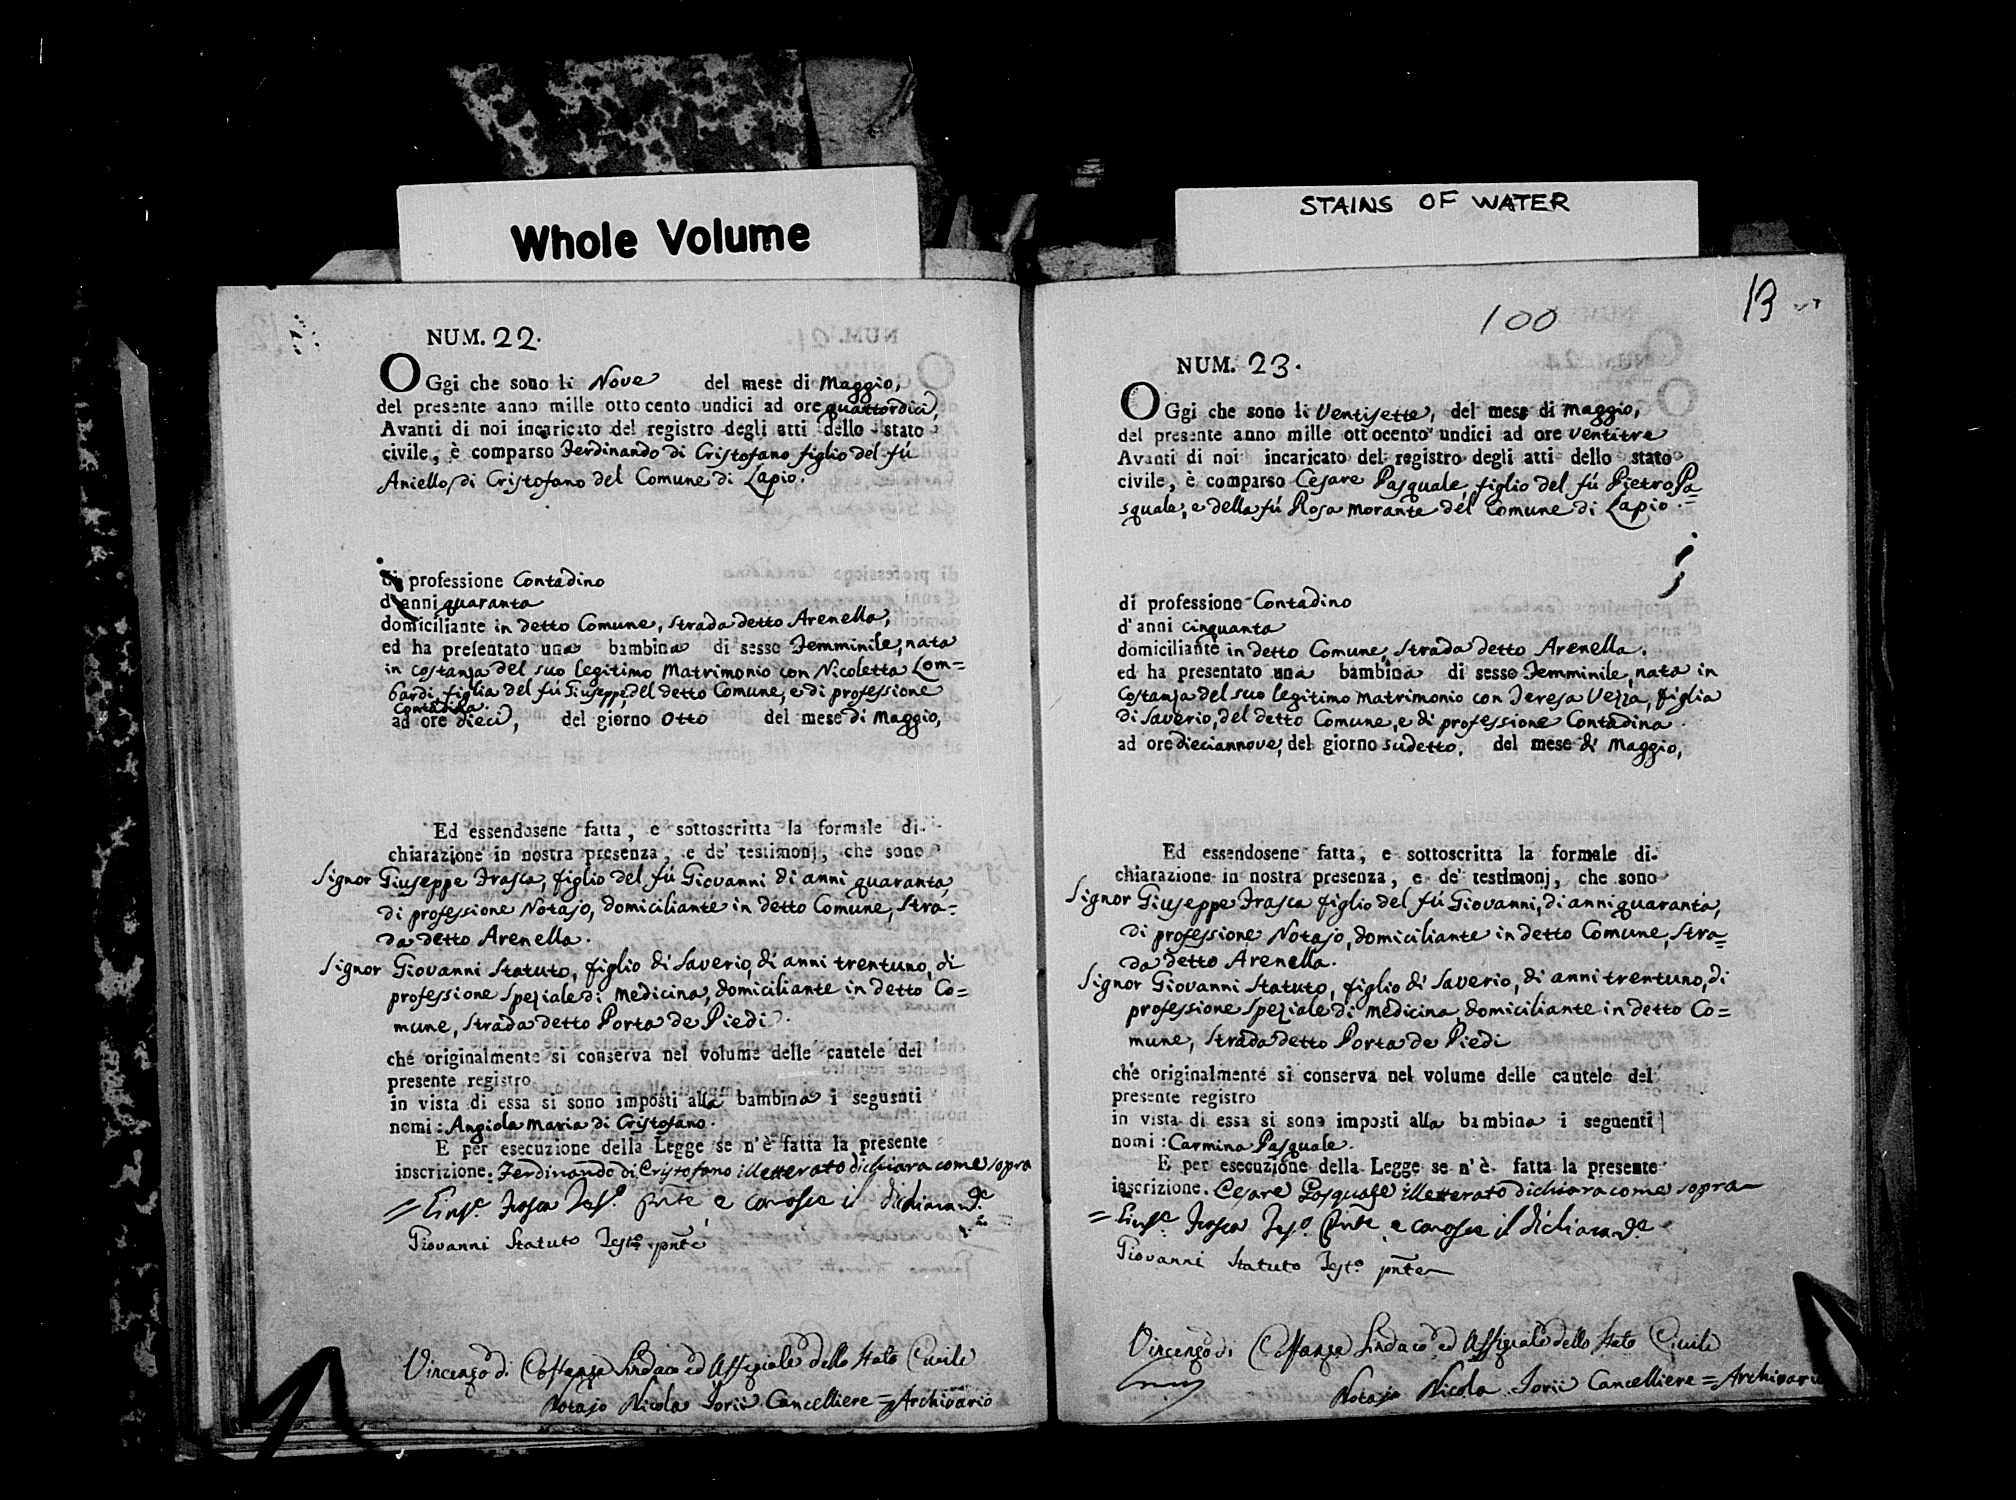 Whole Volume
STAINS OF WATER
NUM. 22.
OGgi che sono li Nove del mese di Maggio,
del presente anno mille ottocento undici ad ore quattordici,
Avanti di noi incaricato del registro degli atti dello stato
civile, è comparso Ferdinando di Cristofano figlio del fú
Aniello di Cristofano del Comune di Lapio.
di professione Contadino
d'anni quaranta
domiciliante in detto Comune, strada detto Arenella,
ed ha presentato una bambina di sesso Femminile, nata
in costanza del suo legitimo Matrimonio con Nicoletta Lom=
bardi, figlia del fú Giuseppe, del detto Comune, e di professione
Contadina.
ad ore dieci, del giorno otto del mese di Maggio,
Ed essendosene fatta, e sottoscritta la formale di-
chiarazione in nostra presenza, e de' testimonj, che sono
Signor Giuseppe Frasca, figlio del fú Giovanni di anni quaranta,
di professione Notajo, domiciliante in detto Comune, Stra=
da detto Arenella.
Signor Giovanni Statuto, figlio di Saverio, di anni trentuno, di
professione Speziale di medicina, domiciliante in detto Co=
mune, Strada detto Porta de Piedi.
che originalmente si conserva nel volume delle cautele del
presente registro
in vista di essa si sono imposti alla bambina i seguenti
nomi: Angiola Maria di Cristofano.
E per esecuzione della Legge se n'è fatta la presente
inscrizione. Ferdinando di Cristofano illetterato dichiara come sopra
= Gius.e Frasca Tes.o pnte e conosce il dichiarante
Giovanni Statuto Testo. pnte
Vincenzo di Costanzo Sindaco ed Uffiziale dello Stato Civile
Notajo Nicola Iorii Cancelliere = Archivario
13
100
NUM. 23.
OGgi che sono li Ventisette, del mese di Maggio,
del presente anno mille ottocento undici ad ore ventitre
Avanti di noi incaricato del registro degli atti dello stato
civile, è comparso Cesare Pasquale, figlio del fú Pietro Pa=
squale, e della fú Rosa Morante del Comune di Lapio.
di professione Contadino
d'anni cinquanta
domiciliante in detto Comune, Strada detto Arenella.
ed ha presentato una bambina di sesso Femminile, nata in
Costanza del suo legitimo matrimonio con Teresa Vezza, figlia
di Saverio, del detto Comune, e di professione Contadina
ad ore dieciannove, del giorno sudetto, del mese di Maggio,
Ed essendosene fatta, e sottoscritta la formale di-
chiarazione in nostra presenza, e de' testimonj, che sono
Signor Giuseppe Frasca figlio del fú Giovanni, di anni quaranta,
di professione Notajo, domiciliante in detto Comune, Stra=
da detto Arenella.
Signor Giovanni Statuto, figlio di Saverio, di anni trentuno, di
professione Speziale di medicina, domiciliante in detto Co=
mune, Strada detto Porta de Piedi
che originalmente si conserva nel volume delle cautele del
presente registro
in vista di essa si sono imposti alla bambina i seguenti
nomi: Carmina Pasquale.
E per esecuzione della Legge se n'è fatta la presente
inscrizione. Cesare Pasquale illetterato dichiara come sopra
= Gius.e Frasca Tes.o pnte e conosce il dichiarante
Giovanni Statuto Test.o pnte
Vincenzo di Costanzo Sindaco ed Uffiziale dello Stato Civile
Notajo Nicola Iorii Cancelliere = Archivario